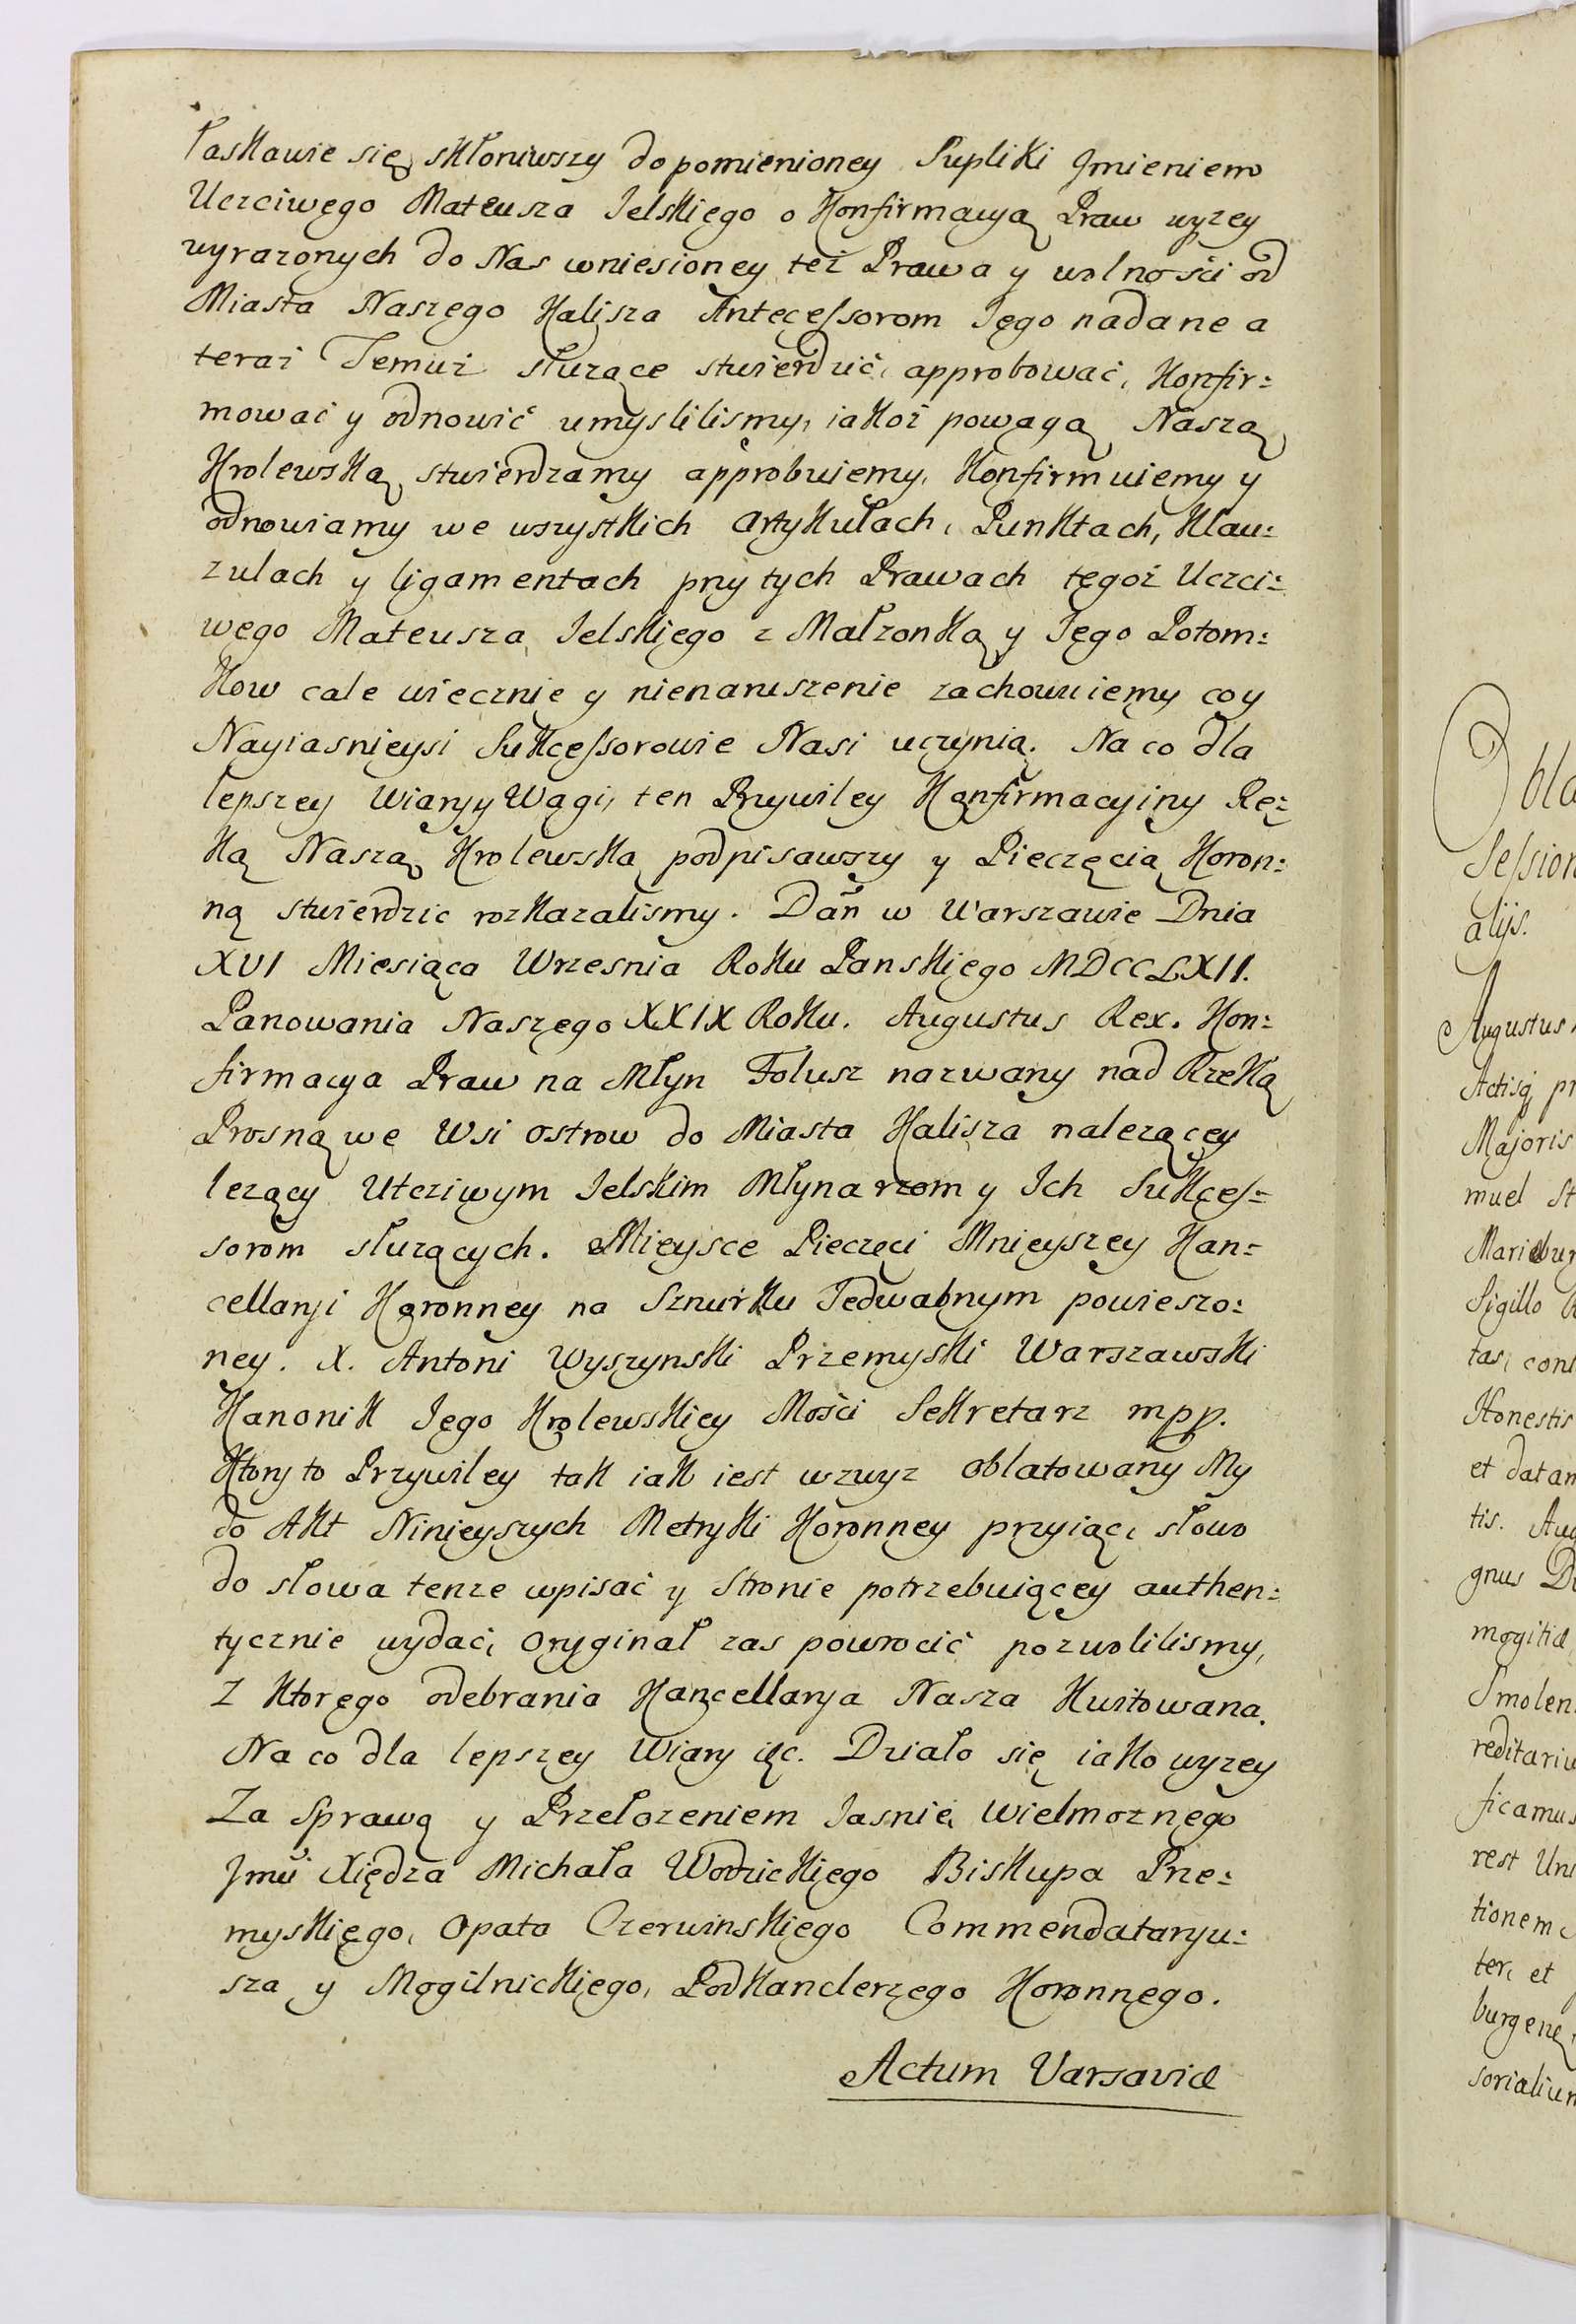 łaskawie się skłoniwszy do pomienioney Supliki Jmieniem
Uczciwego Mateusza Jelskiego o Konfirmacyą Praw wyzey
wyrazonych do Nas wniesioney też Prawa y wolności od
Miasta Naszego Kalisza Antecessorom Jego nadane a
teraż Jemuż służące stwierdzić, approbować, Konfir=
mować y odnowić umyslilismy, iakoż powagą Naszą
Krolewską stwierdzamy approbuiemy, Konfirmuiemy y
odnowiamy we wszystkich artykułach, Punktach, Klau=
zulach y ligamentach przy tych Prawach tegoż Uczci=
wego Mateusza Jelskiego z Małzonką y Jego Potom=
kow cale wiecznie y nienaruszenie zachowuiemy co y
Nayiasnieysi Sukcessorowie Nasi uczynią. Na co dla
lepszey Wiary y Wagi, ten Przywiley Konfirmacyiny Rę=
ką Naszą Krolewską podpisawszy y Pieczęcią Koron=
ną stwierdzic rozkazalismy. Dan w Warszawie Dnia
XVI Miesiąca Wrzesnia Roku Panskiego MDCCLXII.
Panowania Naszego XXIX Roku. Augustus Rex. Kon=
firmacya Praw na Młyn Folusz nazwany nad Rzeką
Prosną we Wsi Ostrow do Miasta Kalisza nalezącey
lezący Utcziwym Jelskim Młynarzom y Ich Sukces=
sorom sluzących. Mieysce Pieczęci Mnieyszey Kan=
cellaryi Koronney na Sznurku Jedwabnym powieszo=
ney. X. Antoni Wyszynski Przemyski Warszawski
Kanonik Jego Krolewskiey Mości Sekretarz mpp.
Ktory to Przywiley tak iak iest wzwyz oblatowany My
do Akt Ninieyszych Metryki Koronney przyiąć, słowo
do słowa tenze wpisać y Stronie potrzebuiącey authen=
tycznie wydać, Oryginał zas powrocić pozwolilismy,
z ktorego odebrania Kancellarya Nasza Kwitowana.
Na co dla lepszey Wiary &c. Działo się iako wyzey
Za Sprawą y Przełozeniem Jasnie Wielmoznego
Jmci Xiędza Michała Wodzickiego Biskupa Prze=
myskiego, Opata Czerwinskiego Commendataryu=
sza y Mogilnickiego, Podkanclerzego Koronnego.
Actum Varsaviæ
Obla
Session
alijs.
Augustus
Actisq pr
Majoris
muel St
Marieburg
Sigillo R
tas, cont
Honestis
et datam
tis. Aug
gnus D
mogitiæ
Smolen
reditariu
ficamus
rest Uni
tionem
ter, et
burgen
sorialium